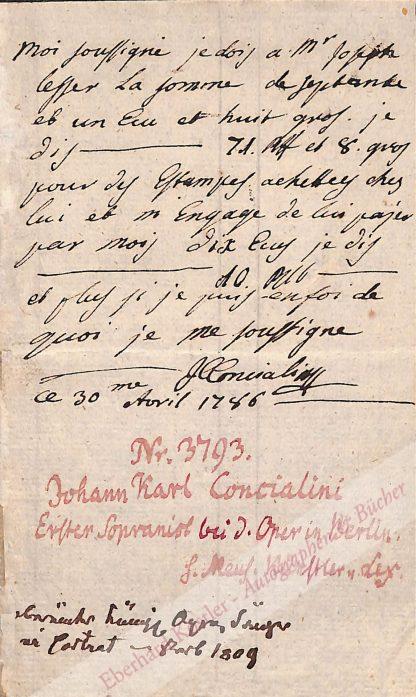 Moi soussigné je dois a Mr Joseph
lesser La somme de septante
et un Ecu et huit gros. je
dis 71. et 8. gros
pour des Estampes achettees chez
lui et m'Engage de lui payer
par mois dix Ecus je dis
10
et plus si je puis enfoi de
quoi je me soussigne
JConcialini
ce 30me Avril 1786
Nr. 3793.
Johann Karl Concialini
Erster Sopranist bei d. Oper in Berlin.
s. Meus. Künstler-Lex.
Sänger
Portrait starb 1809
Eberhard Köstler - Autographen & Bücher